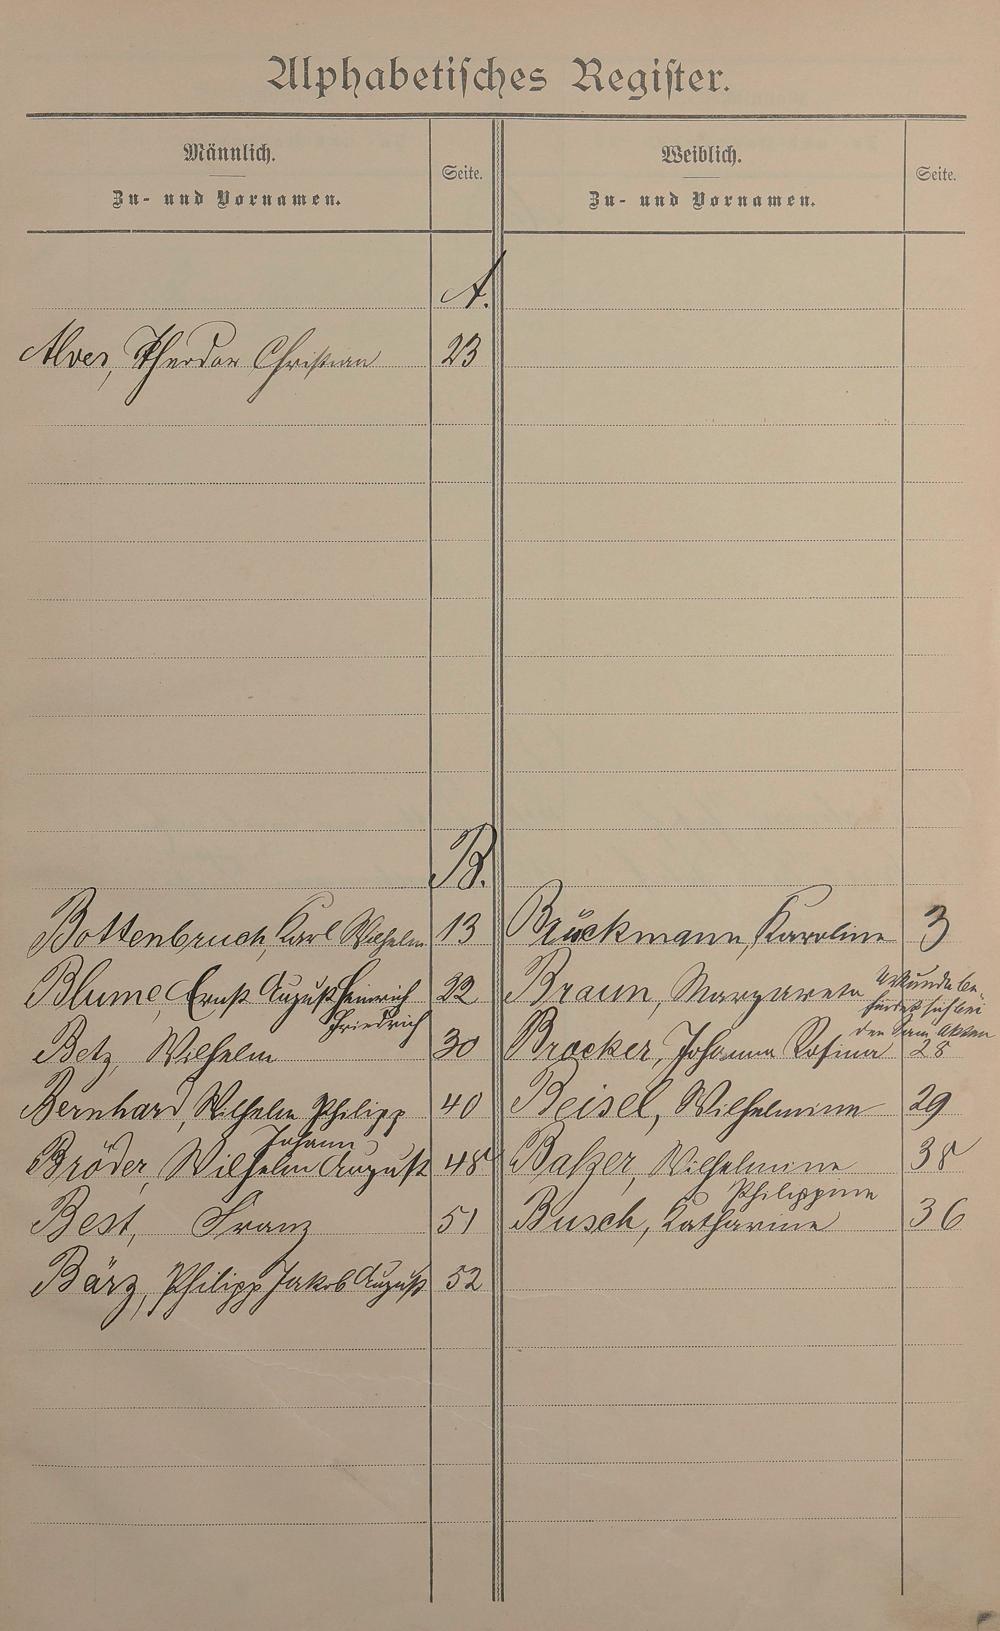 Alphabetisches Register.
Männlich.
Zu- und Vornamen.
Seite.
Weiblich.
Zu- und Vornamen.
Seite.
A.
Alver, Theodor Christian 23
B.
Bottenbruch, Karl Wilhelm 13
Brückmann, Karoline 3
Blume, Ernst August Heinrich 22
Friedrich
Braun, Margareta Urkunde be-
findet sich bei
den Akten
Betz, Wilhelm 30
Brocker, Johanna Rosina 28
Bernhard, Wilhelm Philipp 40
Beisel, Wilhelmine 29
Johann
Bröder, Wilhelm August 48
Balzer, Wilhelmine 38
Philippine
Best, Franz 51
Busch, Katharine 36
Bärz, Philipp Jakob August 52